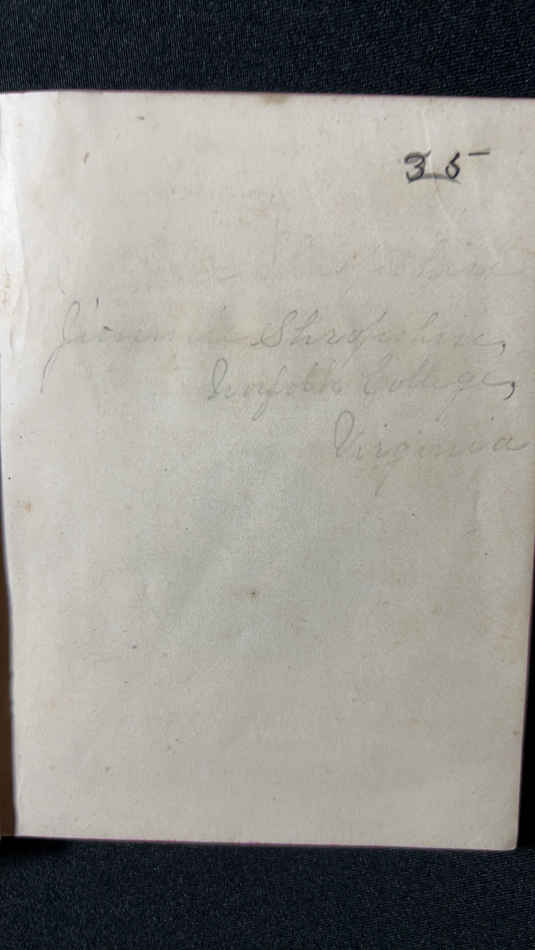 35-
Jimmie Shropshire,
Norfolk College,
Virginia